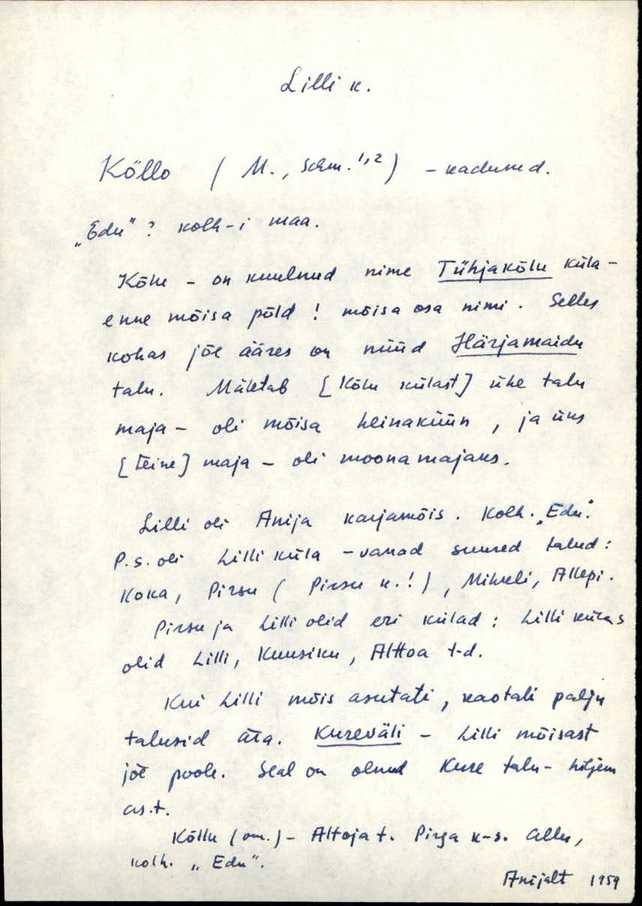 Lilli k.
Kõllo ( M., Schm.¹,²) – kadunud.
„Edu"? kolh-i maa.
Kõlu – on kuulnud nime Tühjakõlu küla –
enne mõisa põld! mõisa osa nimi. Selles
kohas jõe ääres on nüüd Härjamaidu
talu. Mäletab [Kõlu külast] ühe talu
maja – oli mõisa heinaküün, ja üks
[teine] maja – oli moonamajaks.
Lilli oli Anija karjamõis. Kolh. „Edu".
P.s. oli Lilli küla – vanad suured talud:
Koka, Pirsu ( Pirsu k.!), Mihkli, Allepi.
Pirsu ja Lilli olid eri külad: Lilli külas
olid Lilli, Kuusiku, Alttoa t-d.
Kui Lilli mõis asutati, kaotati palju
talusid ära. Kureväli – Lilli mõisast
jõe poole. Seal on olnud Kure talu – hiljem
as.t.
Kõllu (om.) – Altoja t. Pirsa k-s. allu,
kolh. „Edu".
Anijalt 1959